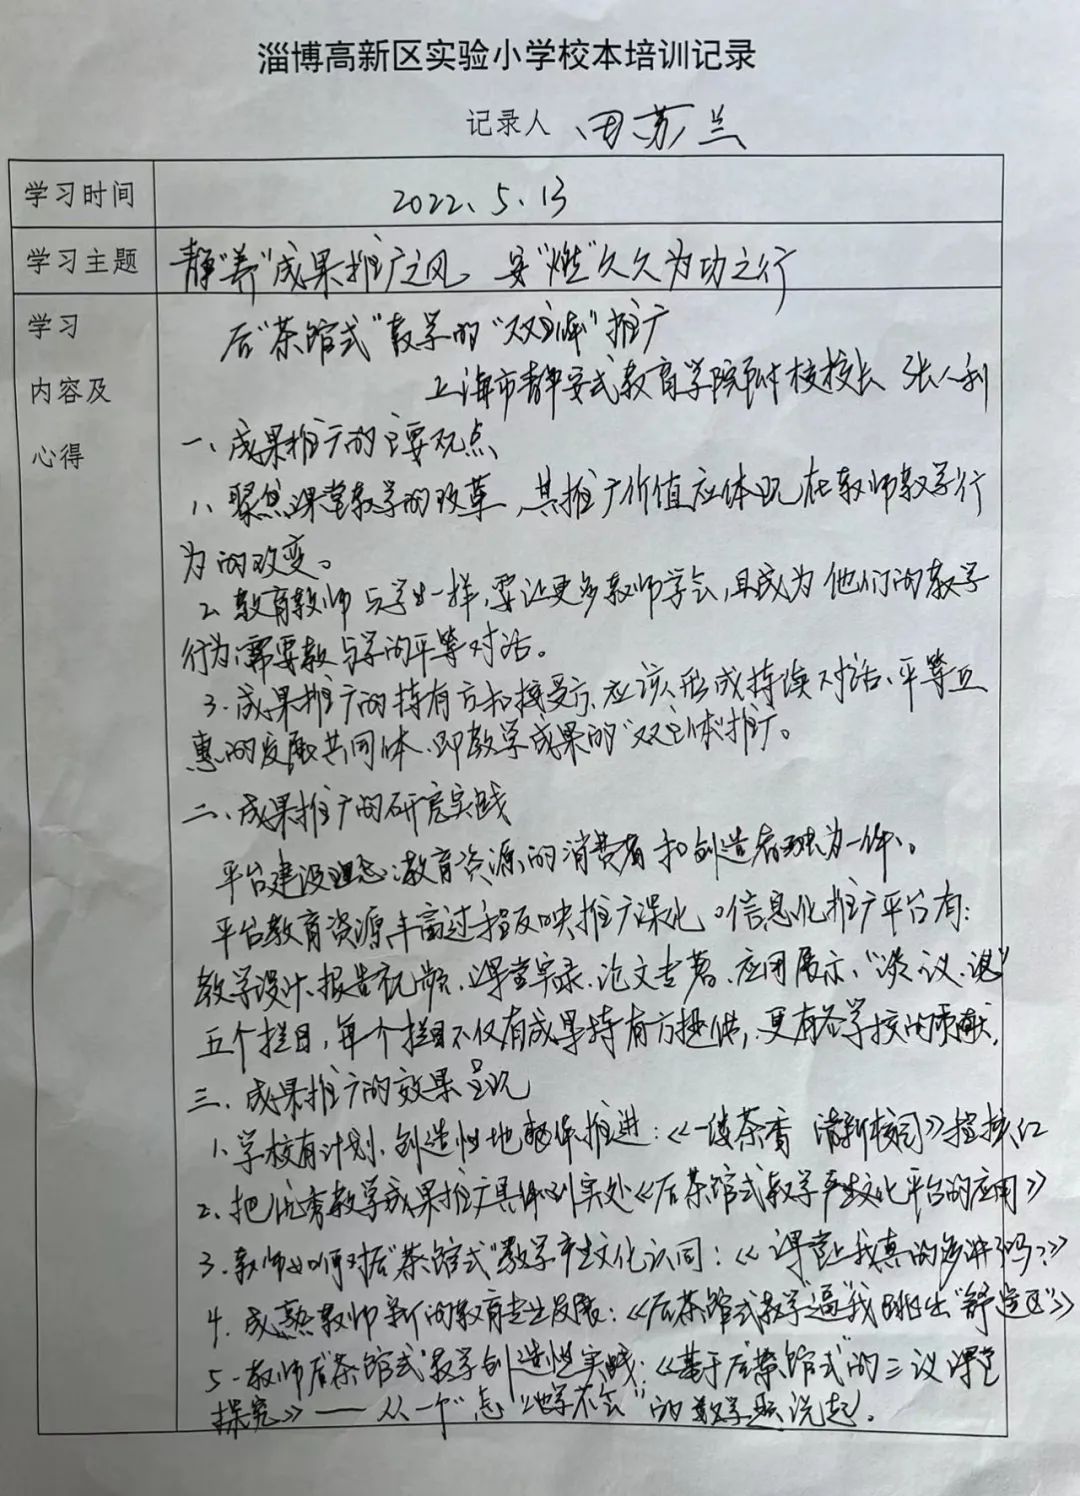 淄博高新区实验小学校本培训记录
记录人 田苏兰
学习时间 2022.5.13
学习主题 静"养"成果推广之风、安"燃"久久为功之行
学习
内容及
心得
后"茶馆式"教学的"双主体"推广
上海市静安区教育学院附校校长 张人利
一、成果推广的主要观点
1、聚焦课堂教学的改革,其推广价值应体现在教师教学行
为的改变。
2、教育教师与学生一样,要让更多教师学会,且成为他们的教学
行为,需要教与学的平等对话。
3.成果推广的持有方和接受方,应该形成持续对话、平等互
惠的发展共同体、即教学成果的"双主体"推广。
二、成果推广的研究实践
平台建设理念:教育资源的消费者和创造者融为一体、。
平台教育资源丰富过程反映推广深化。信息化推广平台有:
教学设计、报告视频、课堂实录、论文专著、应用展示、"谈、议、说"
五个栏目,每个栏目不仅有成果持有方提供,更有各学校的贡献.
三、成果推广的效果呈现
1.学校有计划、创造性地整体推进:《一缕茶香 清新校园》
2、把优秀教学成果推广具体到实处《后茶馆式教学 文化平台的应用》
3.教师如何对后"茶馆式"教学 文化认同:《课堂上我真的多讲了吗?》
4.成熟教师新的教育专业发展:《后茶馆式教学逼我跳出"舒适区"》
5.教师后"茶馆式"教学创造性实践:《基于后"茶馆式"的三议课堂
探究》——从一个"怎 学不会"的教学 说起.